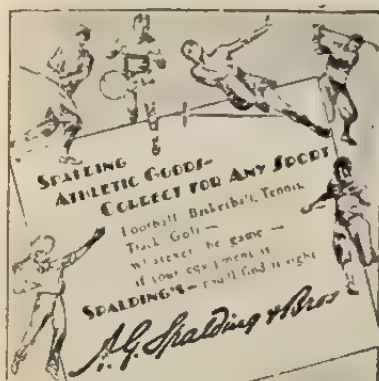 SPALDING
ATHLETIC GOODS—
CORRECT FOR ANY SPORT
Football, Basketball, Tennis,
Track, Golf—
whatever the game—
if your equipment is
SPALDING'S— you'll find it right.
A.G. Spalding & Bros